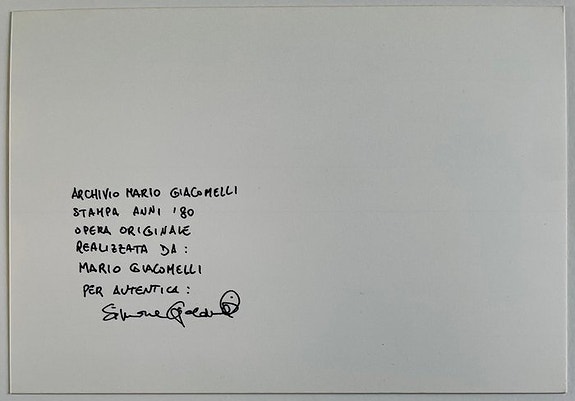 ARCHIVIO MARIO GIACOMELLI
STAMPA ANNI '80
OPERA ORIGINALE
REALIZZATA DA :
MARIO GIACOMELLI
PER AUTENTICA :
Simone